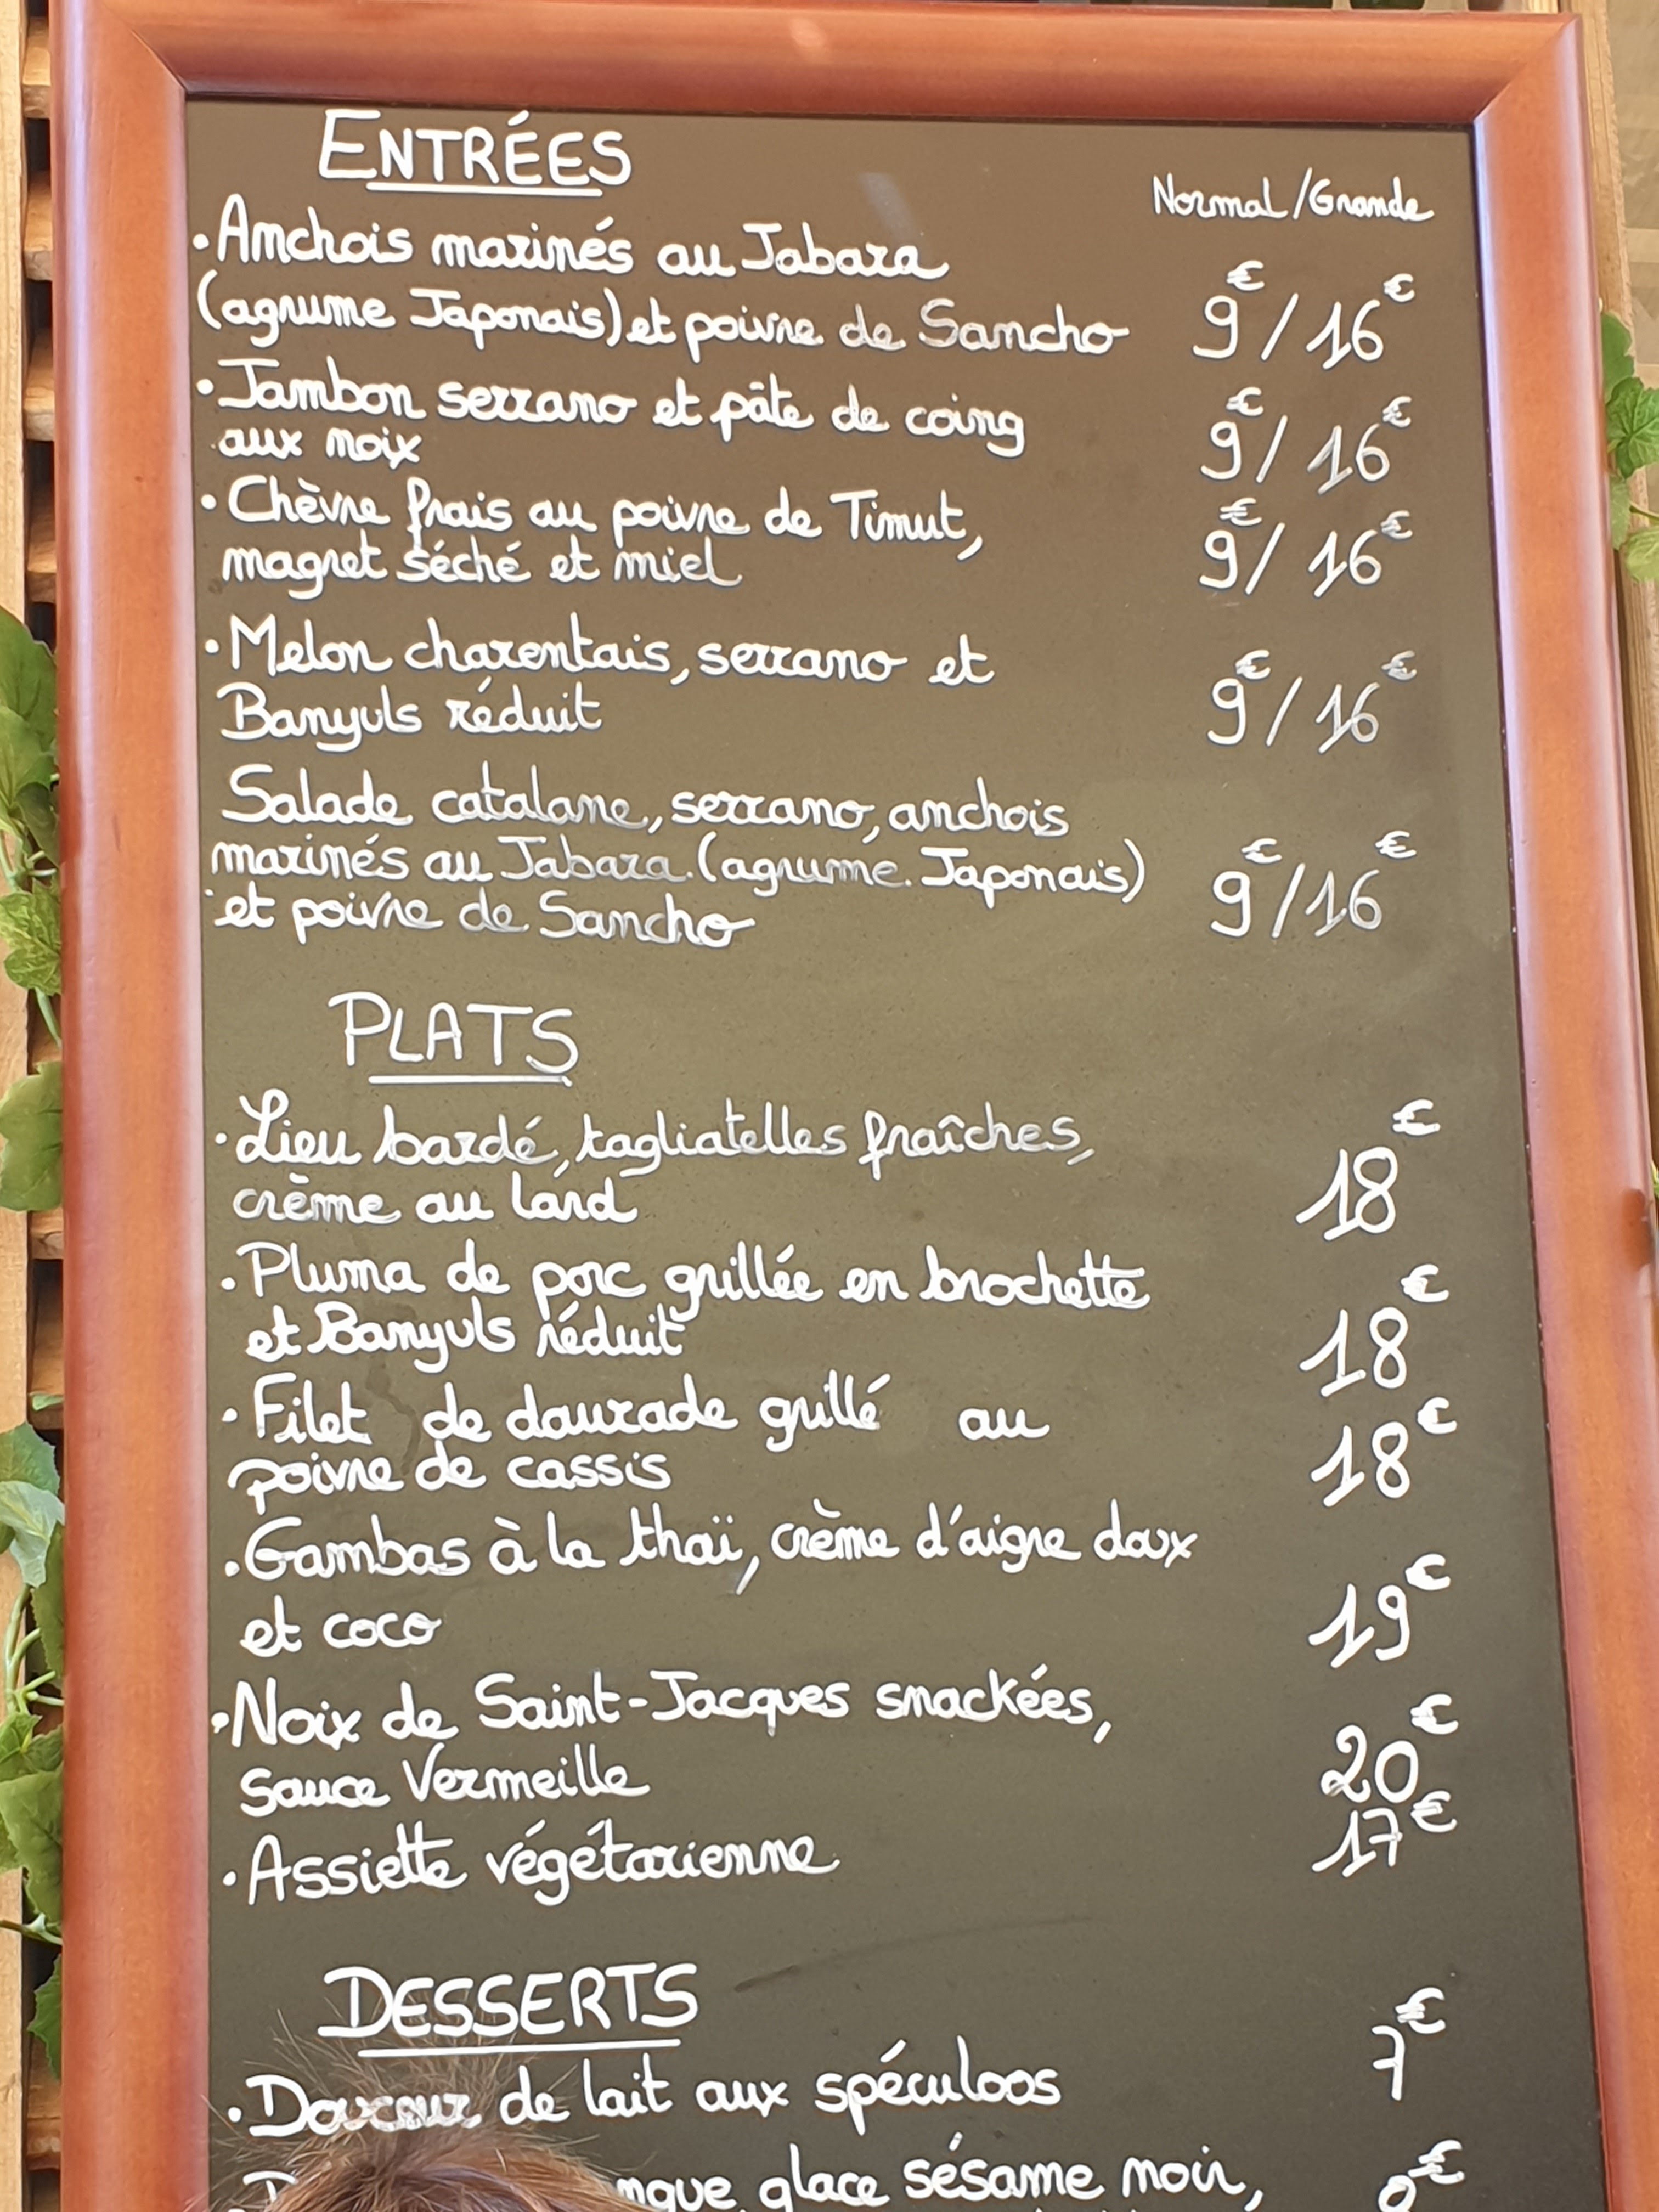 ENTRÉES
Normal/Grande
• Anchois marinés au Jabara
(agrume Japonais) et poivre de Sancho 9€/16€
• Jambon serrano et pâte de coing
aux noix 9€/16€
• Chèvre frais au poivre de Timut,
magret séché et miel 9€/16€
• Melon charentais, serrano et
Banyuls réduit 9€/16€
Salade catalane, serrano, anchois
marinés au Jabara (agrume Japonais)
et poivre de Sancho 9€/16€
PLATS
• Lieu bardé, tagliatelles fraîches,
crème au lard 18€
• Pluma de porc grillée en brochette
et Banyuls réduit 18€
• Filet de daurade grillé au
poivre de cassis 18€
• Gambas à la thaï, crème d'aigre doux
et coco 19€
• Noix de Saint-Jacques snackées,
sauce Vermeille 20€
• Assiette végétarienne 17€
DESSERTS
• Douceur de lait aux spéculoos 7€
glace sésame noir,